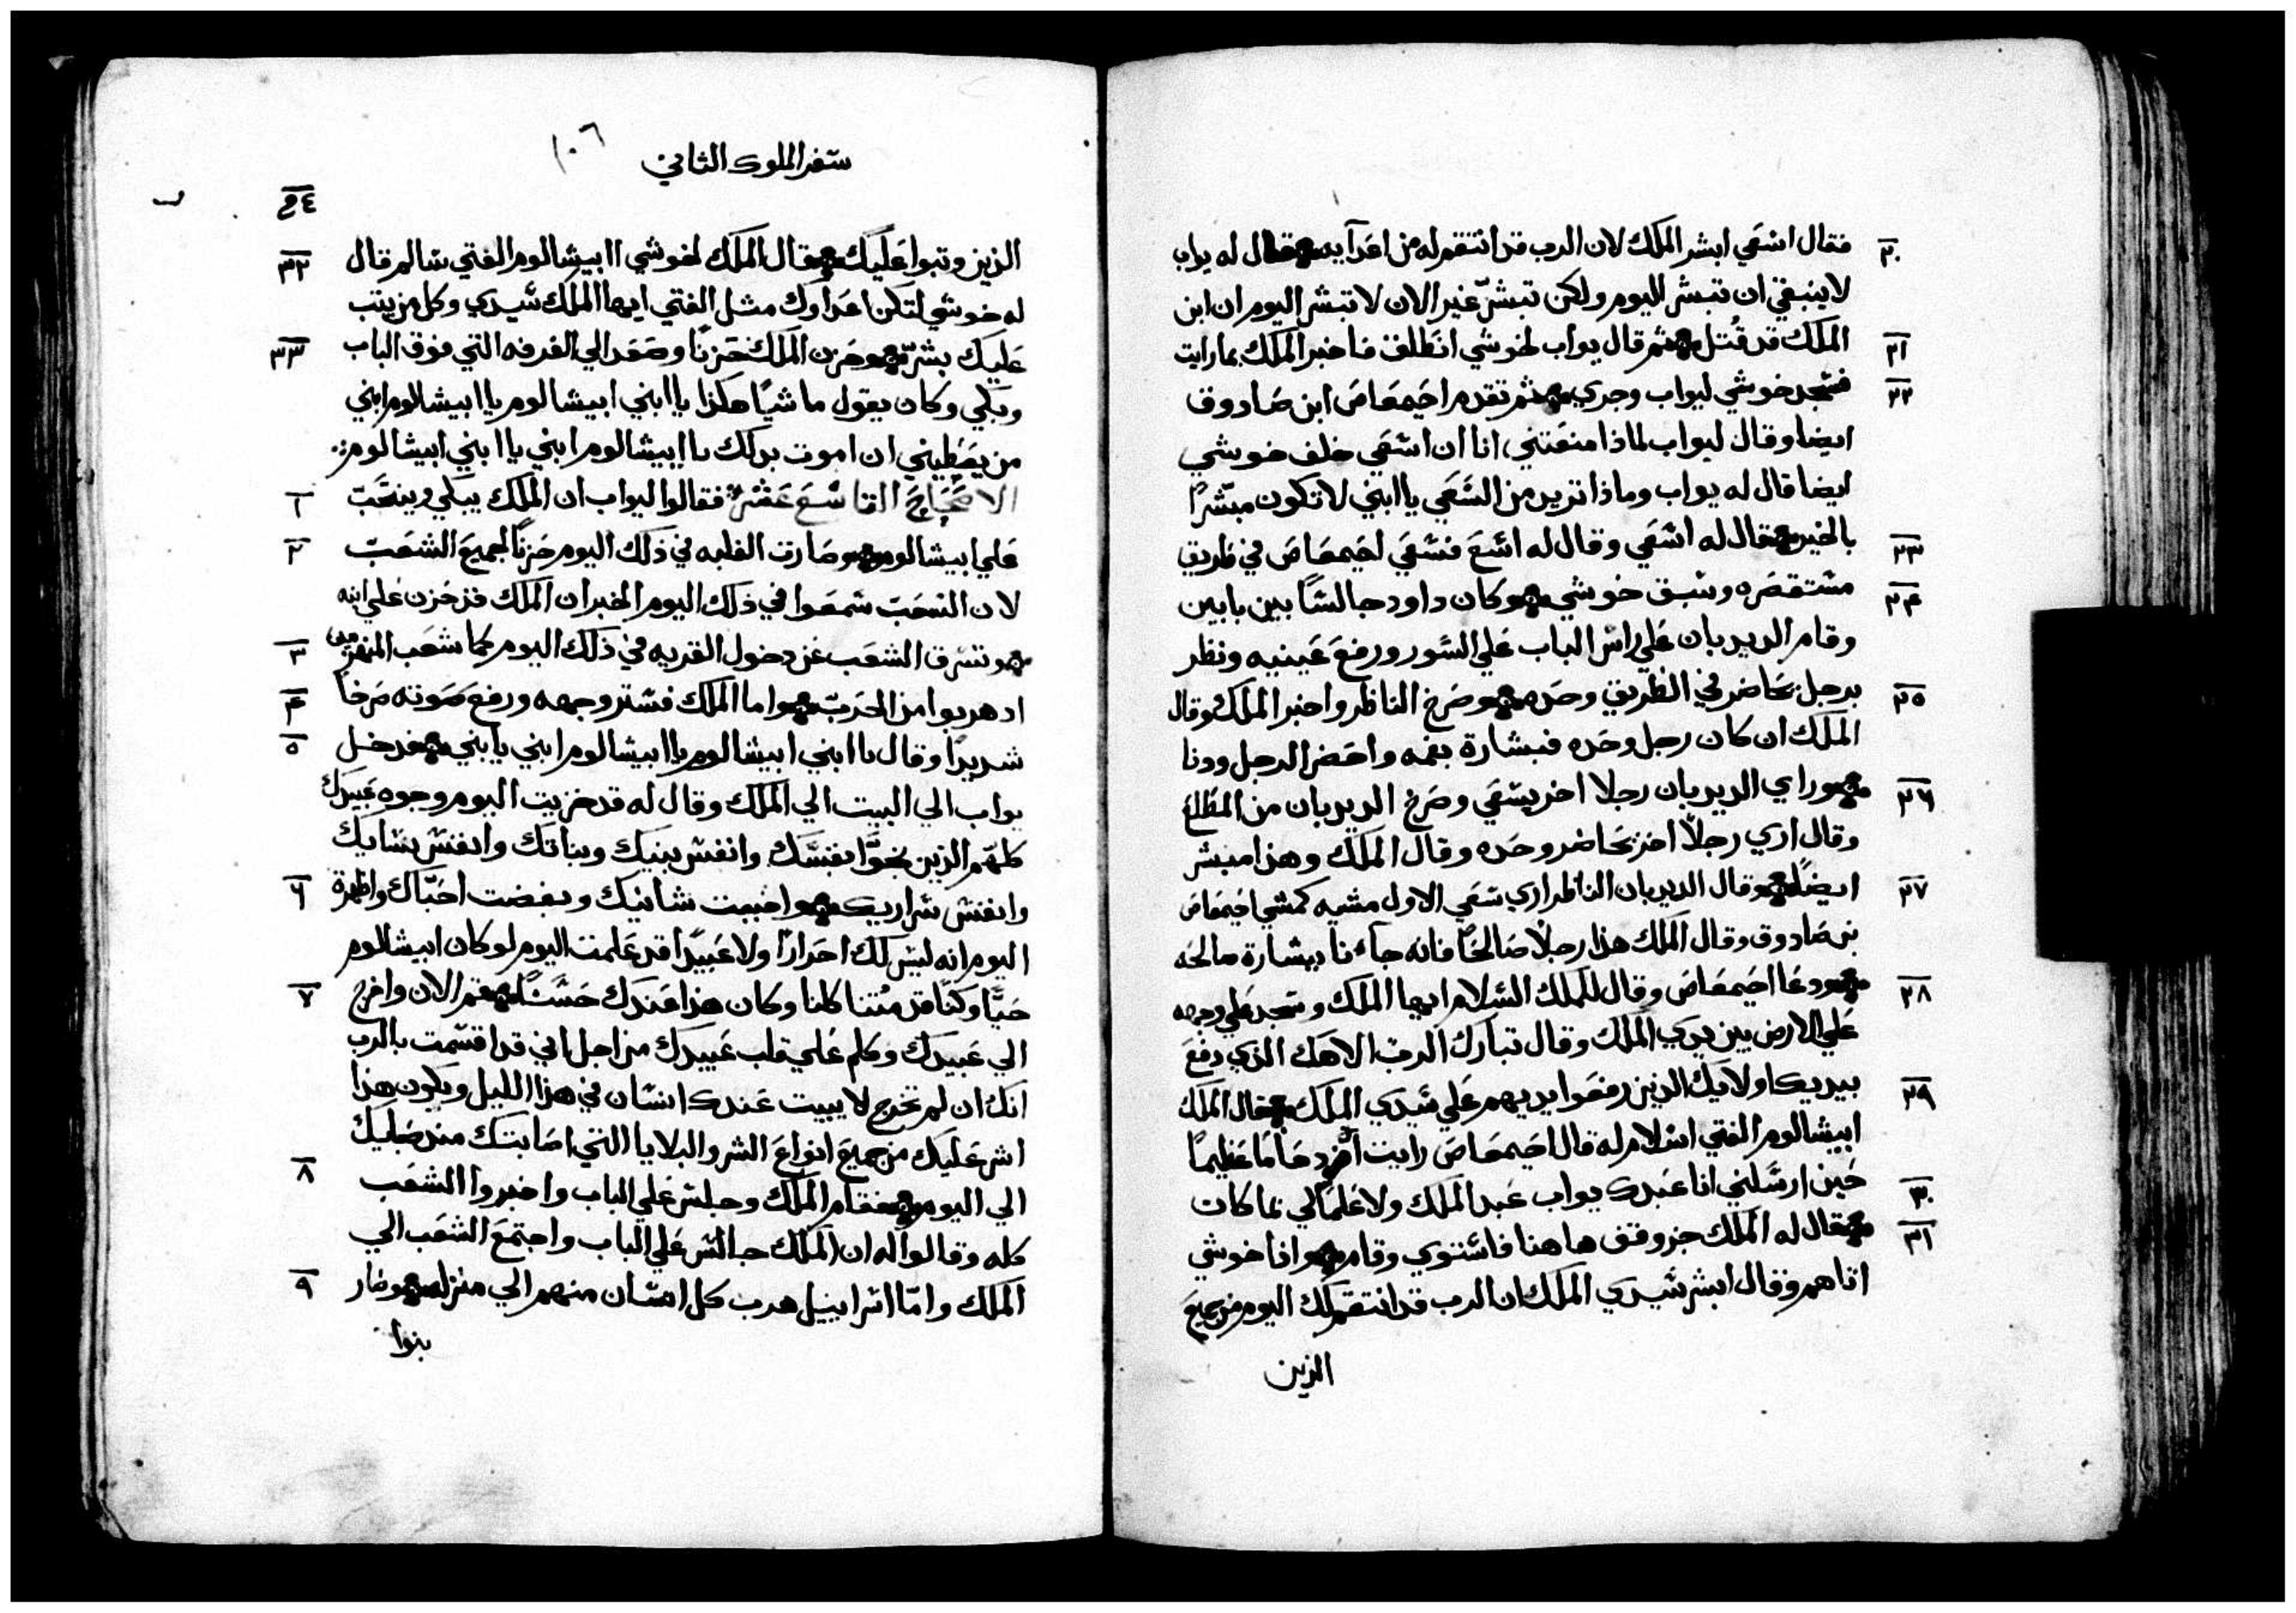 فقال اسعي ابشر الملك لان الرب قد انتقم له من اعدآيه فقال له يواب
لا ينبغي ان تبشر اليوم ولكن تبشر غير الان لا تبشر اليوم ان ابن
الملك قد قُتل ثم قال يواب لخوشي انطلق فاخبر الملك بما رايت
فسجد خوشي ليواب وجري ثم تقدم احيمعاص ابن صادوق
ايضا وقال ليواب لماذا منعتني انا ان اسعي خلف خوشي
ايضا قال له يواب وماذا تريد من السعي يا ابني لا تكون مبشرًا
بالخير فقال له اسعي وقال له اسع فسعي احيمعاص في طريق
مستقصره وسبق خوشي وكان داود جالسًا بين بابين
وقام الديدبان علي راس الباب علي السور ورفع عينيه ونظر
برجل يحاضر في الطريق وحده وصرخ الناظر واخبر الملك وقال
الملك ان كان رجل وحده فبشارة بفمه واحضر الرجل ودنا
وراي الديدبان رجلا اخر يسعي وصرخ الديدبان من المطلع
وقال اري رجلًا اخر يحاضر وحده وقال الملك وهذا مبشر
ايضًا وقال الديدبان الناظر اري سعي الاول مشيه كمشي احيمعاص
بن صادوق وقال الملك هذا رجلًا صالحًا فانه جآءنا ببشارة صالحه
ودعا احيمعاص وقال للملك السلام ايها الملك وسجد علي وجهه
علي الارض بين يدي الملك وقال تبارك الرب الاهك الذي دفع
بيديك اولايك الذين رفعوا ايديهم علي سيدي الملك فقال الملك
ابيشالوم الفتي اسلام له قال احيمعاص رايت امرًا عظيمًا
حين ارسلني انا عبدك يواب عبد الملك ولا علمًا لي بما كان
فقال له الملك جز وقف هاهنا فاستوي وقام واذا خوشي
اتاهم وقال ابشر سيدي الملك ان الرب قد انتقم لك اليوم من جميع
الذين
٢٠
٢١
٢٢
٢٣
٢٤
٢٥
٢٦
٢٧
٢٨
٢٩
٣٠
٣١
سفر الملوك الثاني
١٠٦
الذين وتبوا عليك فقال الملك لخوشي ا ابيشالوم الفتي سالم قال
له خوشي لتكن اعداوك مثل الفتي ايها الملك سيدي وكل من يثب
عليك بشرّ وحزن الملك حزنًا وصعد الي الغرفه التي فوق الباب
وبكي وكان يقول ماشيًا هكذا يا ابني ابيشالوم يا ابيشالوم ابني
من يعطيني ان اموت بدلك يا ابيشالوم ابني يا ابني ابيشالوم
الاصحاح التاسع عشر فقالوا ليواب ان الملك يبكي وينحب
علي ابيشالوم وصارت الغلبه في ذلك اليوم حزنًا لجميع الشعب
لان الشعب سمعوا في ذلك اليوم الخبر ان الملك قد حزن علي ابنه
وتسرق الشعب عن دخول القريه في ذلك اليوم كما شعب المنهزمين
اد هربوا من الحرب واما الملك فستر وجهه ورفع صوته صرخًا
شديدًا وقال يا ابني ابيشالوم يا ابيشالوم ابني يابني فدخل
يواب الي البيت الي الملك وقال له قد خزيت اليوم وجوه عبيدك
كلهم الذين نجّوا بنفسك وانفس بنيك وبناتك وانفس نسايك
وانفس سراريك واحببت شانيك وبغضت احبّاك واظهرة
اليوم انه ليس لك احرارًا ولا عبيدًا قد علمت اليوم لو كان ابيشالوم
حيًّا وكنّا قد متنا كلنا وكان هذا عندك حسنًا فقم الان واخرج
الي عبيدك وكلم علي قلب عبيدك من اجل اني قد اقسمت بالرب
انك ان لم تخرج لا يبيت عندك انسان في هذا الليل ويكون هذا
اشر عليك من جميع انواع الشر والبلايا التي اصابتك منذ صباك
الي اليوم فقام الملك وجلس علي الباب واخبروا الشعب
كله وقالوا له ان الملك جالس علي الباب واجتمع الشعب الي
الملك وامّا اسراييل هرب كل انسان منهم الي منزله وصار
بنوا
٣٢
٣٣
١
٢
٣
٤
٥
٦
٧
٨
٩